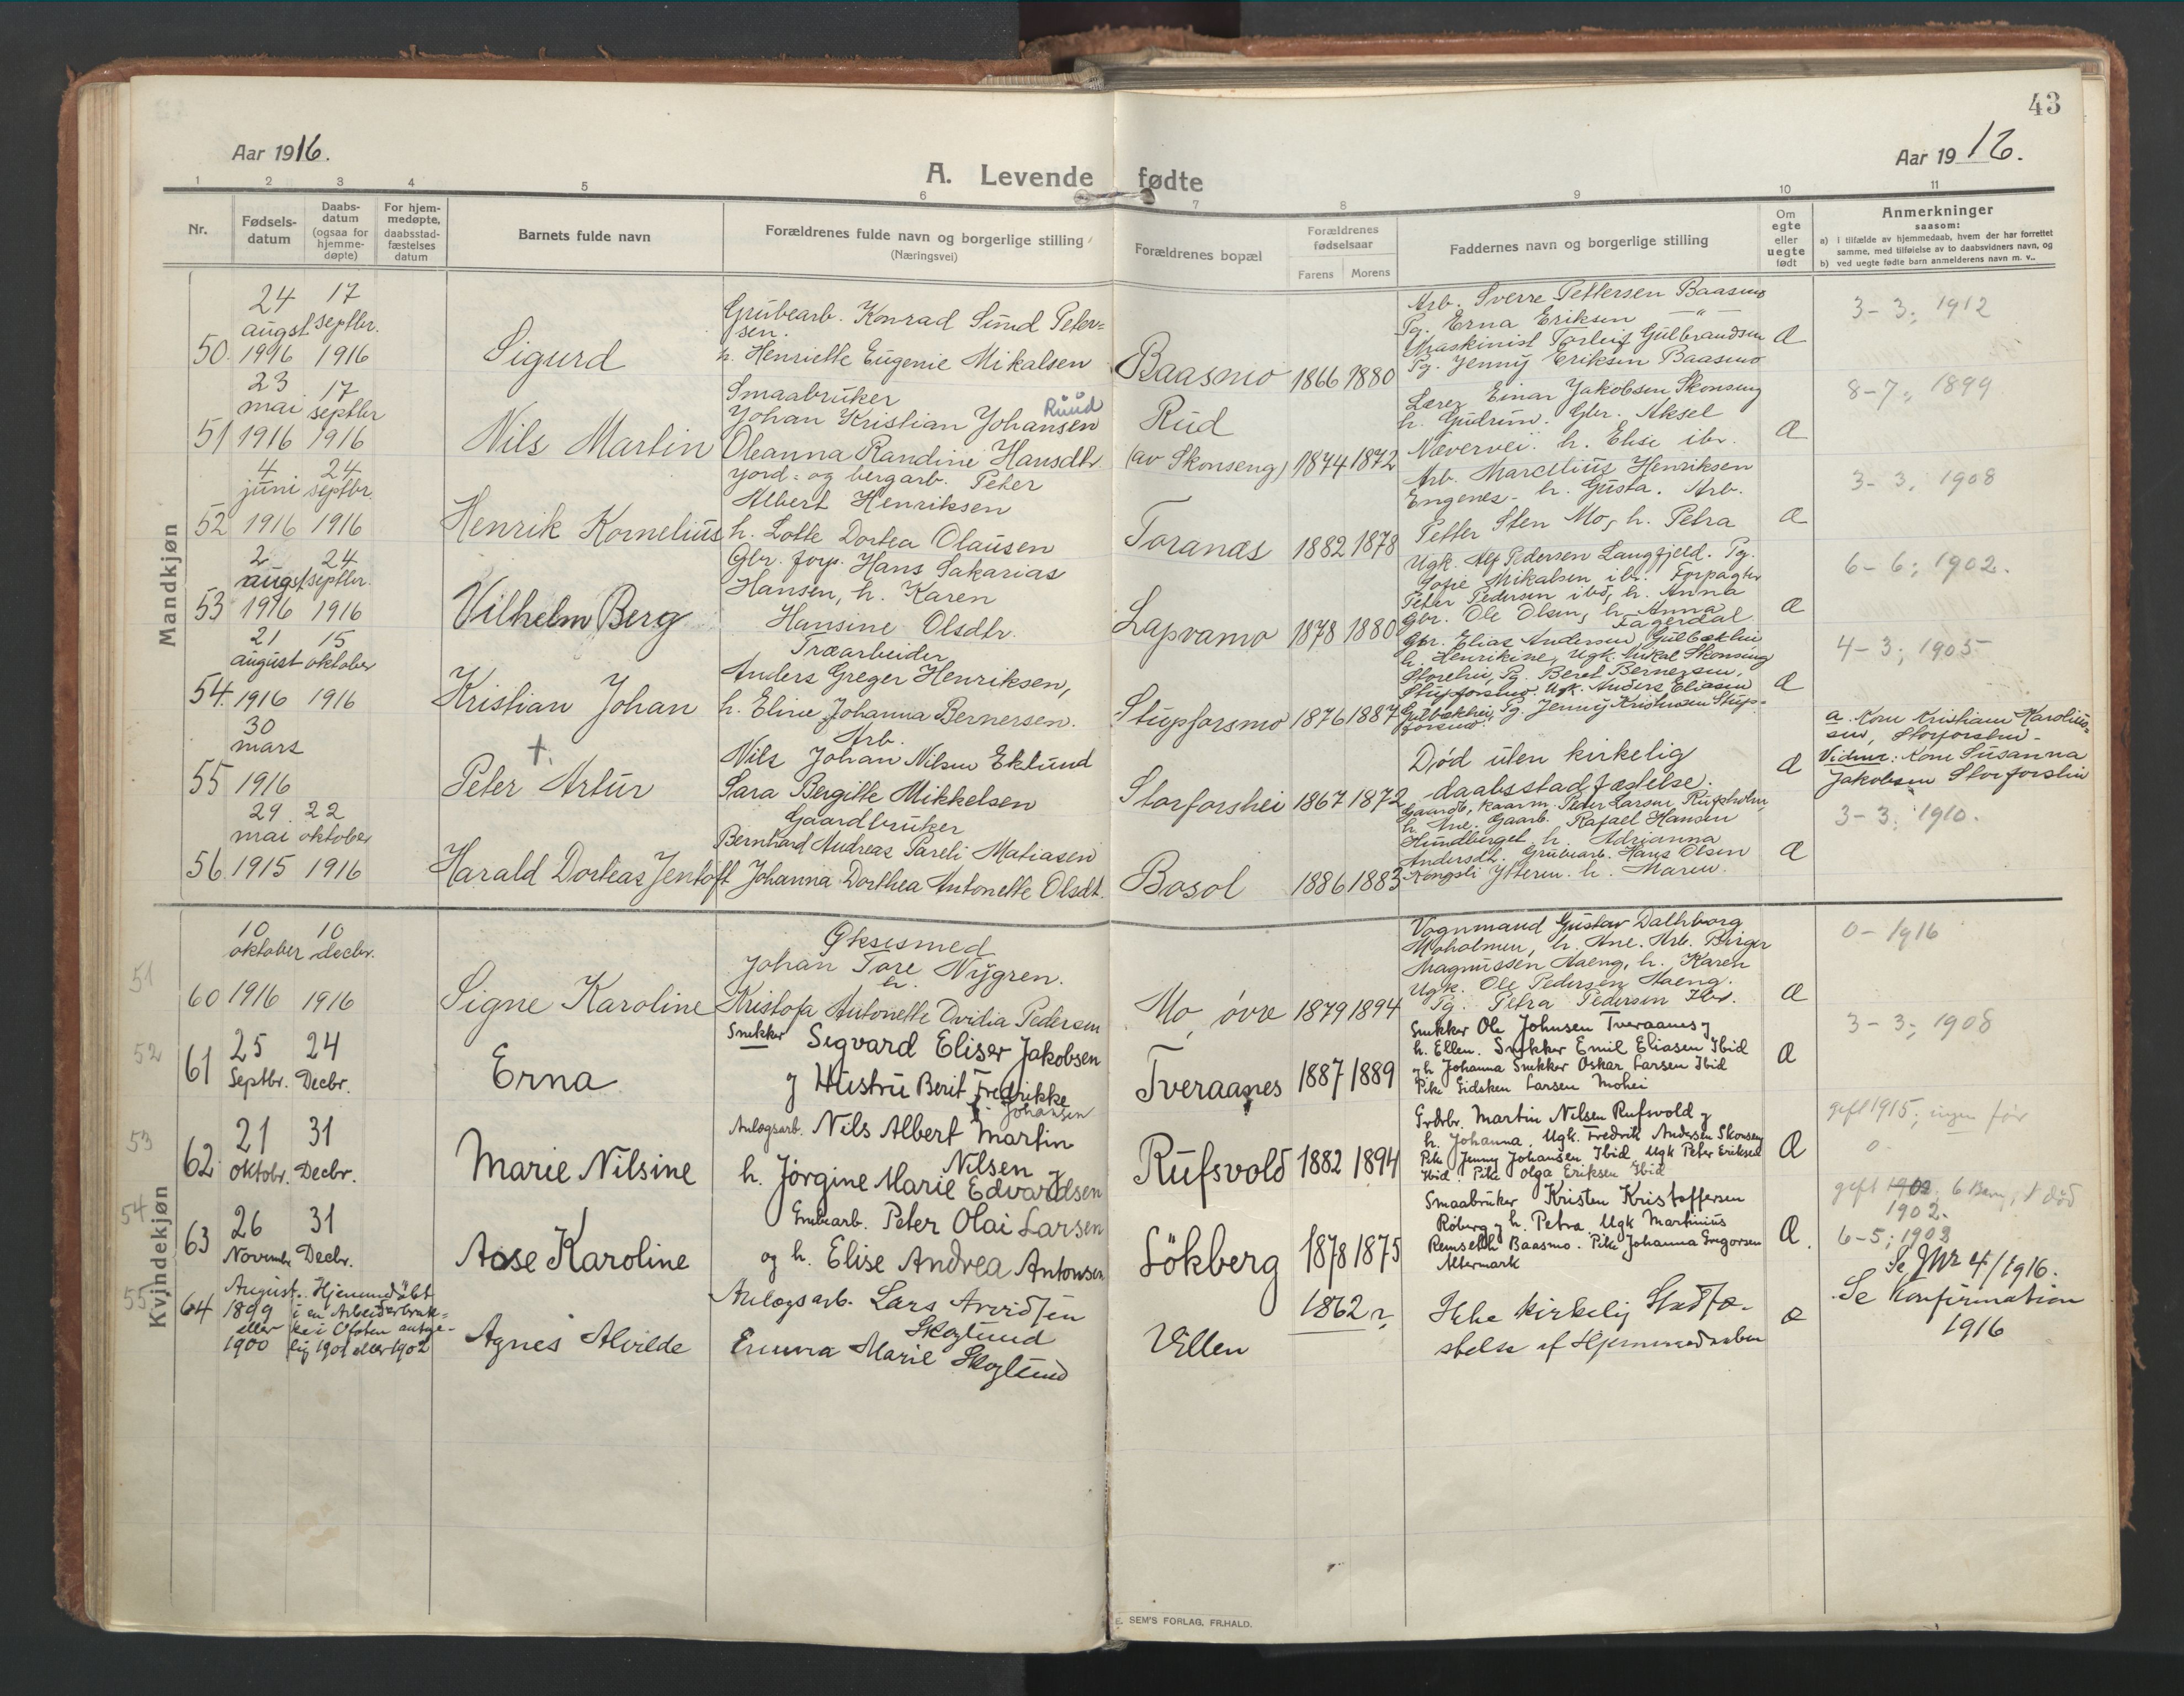 43
Aar 1916.
A. Levende fødte
Aar 1916.
1 2 3 4 5 6 7 8 9 10 11
Nr.
Fødsels-
datum
Daabs-
datum
(ogsaa for
hjemme-
døpte)
For hjem-
medøpte,
daabsstad-
fæstelses
datum
Barnets fulde navn
Forældrenes fulde navn og borgerlige stilling
(Næringsvei)
Forældrenes bopæl
Forældrenes
fødselsaar
Farens Morens
Faddernes navn og borgerlige stilling
Om
egte
eller
uegte
født
Anmerkninger
saasom:
a) i tilfælde av hjemmedaab, hvem der har forrettet
samme, med tilføielse av to daabsvidners navn, og
b) ved uegte fødte barn anmelderens navn m. v..
Mandkjøn
24 17
augst septbr.
50. 1916 1916
Sigurd
Grubearb. Konrad Sund Peter=
sen.
h. Henriette Eugenie Mikalsen
Baasmo 1866 1880
Arb. Sverre Pettersen Baasmo
Pg. Erna Eriksen — " —
Maskinist Torleif Gulbrandsen
Pg. Jenny Eriksen Baasmo
Æ
3-3; 1912
23 17
mai septbr
51 1916 1916
Nils Martin
Smaabruker
Johan Kristian Johansen Ruud
Oleanna Randine Hansdtr.
Rud
(av Skonseng) 1874 1872
Lærer Einar Jakobsen Skonseng
h. Gudrun. Gbr. Aksel
Nævervei. h. Elise ibr.
Æ
8-7; 1899
4 24
juni septbr.
52 1916 1916
Henrik Kornelius
Jord= og bergarb. Peter
Albert Henriksen
h. Lotte Dortea Olausen
Toranæs 1882 1878
Arb. Marcelius Henriksen
Engenes - h. Gusta. Arb.
Petter Sten Mo, h. Petra
Æ
3-3; 1908
2 24
augst septbr.
53 1916 1916
Vilhelm Berg
Gbr. forp. Hans Sakarias
Hansen, h. Karen
Hansine Olsdtr.
Lapvamo 1878 1880
Ugk. Alf Pedersen Langfjeld. Pg.
Sofie Mikalsen ibr. Forpagter
Peter Pedersen ibd, h. Anna
Gbr. Ole Olsen, h. Anna
Fagerdal
Æ
6-6; 1902.
21 15
august oktober
54. 1916 1916
Kristian Johan
Træarbeider
Anders Greger Henriksen,
h. Eline Johanna Bernersen.
Stupforsmo 1876 1887
Gbr. Elias Andersen, Gulbækhei
h. Henrikine, Ugk. Mikal Skonseng
Storehei, Pg. Beret Bernersen,
Stupforsmo. Ugk. Anders Eliasen
Gulbækhei, Pg. Jenny Kristensen Stup=
forsmo.
Æ
4-3; 1905
30
mars
55 1916
+
Peter Artur
Arb.
Nils Johan Nilsen Eklund
Sara Bergitte Mikkelsen
Storforshei 1867 1872
Død uten kirkelig
daabsstadfæstelse.
Æ
a. Kone Kristiane Karolius=
sen, Storforshei -
Vidner: Kone Susanna
Jakobsen Storforshei
29 22
mai oktober
56. 1915 1916
Harald Dorteas Jentoft
Gaardbruker
Bernhard Andreas Pareli Matiasen
Johanna Dorthea Antonette Olsdt.
Bosol 1886 1883
Gaardb, kaarm. Peder Larsen, Rufsholm,
h. Ane. Gaarb. Rafael Hansen
Hundberget h. Adrianna
Andersdt. Grubearb. Hans Olsen
Kongsli Ytteren. h. Maren.
Æ
3-3; 1910.
Kvjndekjøn
10 10
oktober decbr.
51 60 1916 1916
Signe Karoline
Øksesmed
Johan Tore Nygren.
h.
Kristofa Antonette Ovidia Pedersen
Mo, øvre 1879 1894
Vognmand Gustav Dathborg
Moholmen, h. Ane. Arb. Birger
Magnussen Haeng, h. Karen
Ugk. Ole Pedersen Haeng.
Pg. Petra Pedersen Ibd.
Æ
0 - 1916
52 61 25 24
Septbr. Decbr.
Erna
Snekker Segvard Eliser Jakobsen
g Hustru Berit Fredrikke
Johansen
Tveraanes 1887 1889
Snekker Ole Johnsen Tveraanes g
h. Ellen. Snekker Emil Eliasen Ibid
g h. Johanna Snekker Oskar Larsen Ibid
Pike Gidsken Larsen Mohei
Æ
3-3; 1908
53 62 21 31
Oktobr. Decbr.
Marie Nilsine
Anlægsarb. Nils Albert Martin
Nilsen g
h. Jørgine Marie Edvardsen
Rufsvold 1882 1894
Grdbr. Martin Nilsen Rufsvold g
h. Johanna. Ugk. Fredrik Andersen Skonseng
Pike Jenny Johansen Ibid. Ugk Peter Eriksen
Ibid. Pike Olga Eriksen Ibid
Æ
gift 1915; ingen før
0-
54 63 26 31
Novembr Decbr.
Aase Karoline
Grubearb. Peter Olai Larsen
og h. Elise Andrea Antonsen
Løkberg 1878 1875
Smaabruker Kristen Kristoffersen
Røberg g h. Petra. Ugk Martinius
Remseth Baasmo. Pike Johanna Gregorsen
Altermark
Æ.
gift 1902; 6 Barn, 1 død
1902.
6-5; 1902
55 64 August
1899
eller
1900
Hjemmedøbt
i en Arbeiderbrak=
ke i Ofoten antage-
lig 1901 eller 1902
Agnes Alvilde
Anlægsarb. Lars Arvidsen
Skoglund
Emma Marie Skoglund
Villen
1862 ?
Ikke kirkelig Stadfæ-
stelse af Hjemmedaaben
Æ
Se JNr 4/1916.
Se Konfirmation
1916
E. SEM'S FORLAG, FR.HALD.